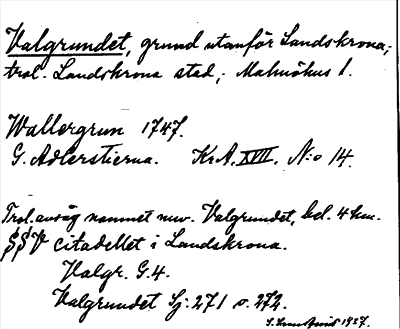 Valgrundet, grund utanför Landskrona;
trol. Landskrona stad; Malmöhus l.
Wallergrun 1747.
G. Adlerstierna. Kr.A. XVII, N:o 14.
Trol. avsåg namnet nuv. Valgrundet, bel. 4 km.
SSV citadellet i Landskrona.
Valgr. G.4.
Valgrundet Sj: 271 o. 272.
1937.